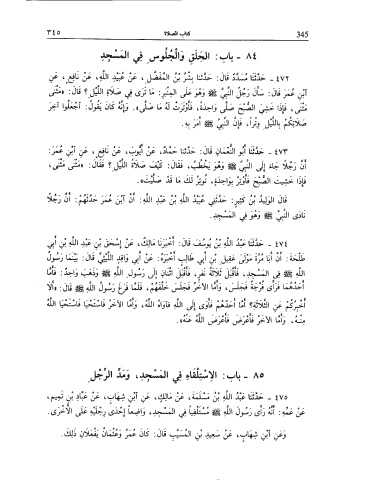 ٣٤٥ كتاب الصلاة 345
٨٤ - باب: الحَلَقِ وَالْجُلُوسِ فِي المَسْجِدِ
٤٧٢ - حَدَّثَنَا مُسَدَّدٌ قَالَ: حَدَّثنا بِشْرُ بْنُ المُفَضَّلِ، عَنْ عُبَيْدِ اللهِ، عَنْ نَافِعٍ، عَنِ
ابْنِ عُمَرَ قَالَ: سَأَلَ رَجُلٌ النَّبِيَّ ﷺ وَهُوَ عَلَى المِنْبَرِ: مَا تَرَى فِي صَلَاةِ اللَّيْلِ؟ قَالَ: «مَثْنَى
مَثْنَى، فَإِذَا خَشِيَ الصُّبْحَ صَلَّى وَاحِدَةً، فَأَوْتَرَتْ لَهُ مَا صَلَّى». وَإِنَّهُ كَانَ يَقُولُ: اجْعَلُوا آخِرَ
صَلَاتِكُمْ بِاللَّيْلِ وِتْراً، فَإِنَّ النَّبِيَّ ﷺ أَمَرَ بِهِ.
٤٧٣ - حَدَّثَنَا أَبُو النُّعْمَانِ قَالَ: حَدَّثَنَا حَمَّادٌ، عَنْ أَيُّوبَ، عَنْ نَافِعٍ، عَنِ ابْنِ عُمَرَ:
أَنَّ رَجُلًا جَاءَ إِلَى النَّبِيِّ ﷺ وَهُوَ يَخْطُبُ، فَقَالَ: كَيْفَ صَلَاةُ اللَّيْلِ؟ فَقَالَ: «مَثْنَى مَثْنَى،
فَإِذَا خَشِيتَ الصُّبْحَ فَأَوْتِرْ بِوَاحِدَةٍ، تُوتِرُ لَكَ مَا قَدْ صَلَّيْتَ».
قَالَ الوَلِيدُ بْنُ كَثِيرٍ: حَدَّثَنِي عُبَيْدُ اللهِ بْنُ عَبْدِ اللهِ: أَنَّ ابْنَ عُمَرَ حَدَّثَهُمْ: أَنَّ رَجُلًا
نَادَى النَّبِيَّ ﷺ وَهُوَ فِي المَسْجِدِ.
٤٧٤ - حَدَّثَنَا عَبْدُ اللهِ بْنُ يُوسُفَ قَالَ: أَخْبَرَنَا مَالِكٌ، عَنْ إِسْحَقَ بْنِ عَبْدِ اللهِ بْنِ أَبِي
طَلْحَةَ: أَنَّ أَبَا مُرَّةَ مَوْلَى عَقِيلِ بْنِ أَبِي طَالِبٍ أَخْبَرَهُ: عَنْ أَبِي وَاقِدٍ اللَّيْثِيِّ قَالَ: بَيْنَمَا رَسُولُ
اللهِ ﷺ فِي المَسْجِدِ، فَأَقْبَلَ ثَلَاثَةُ نَفَرٍ، فَأَقْبَلَ اثْنَانِ إِلَى رَسُولِ اللهِ ﷺ وَذَهَبَ وَاحِدٌ: فَأَمَّا
أَحَدُهُمَا فَرَأَى فُرْجَةً فَجَلَسَ، وَأَمَّا الآخَرُ فَجَلَسَ خَلْفَهُمْ، فَلَمَّا فَرَغَ رَسُولُ اللهِ ﷺ قَالَ: «أَلَا
أُخْبِرُكُمْ عَنِ الثَّلَاثَةِ؟ أَمَّا أَحَدُهُمْ فَأَوَى إِلَى اللهِ فَآوَاهُ اللهُ، وَأَمَّا الآخَرُ فَاسْتَحْيَا فَاسْتَحْيَا اللهُ
مِنْهُ، وَأَمَّا الآخَرُ فَأَعْرَضَ فَأَعْرَضَ اللهُ عَنْهُ».
٨٥ - باب: الاِسْتِلْقَاءِ فِي المَسْجِدِ، وَمَدِّ الرِّجْلِ
٤٧٥ - حَدَّثَنَا عَبْدُ اللهِ بْنُ مَسْلَمَةَ، عَنْ مَالِكٍ، عَنِ ابْنِ شِهَابٍ، عَنْ عَبَّادِ بْنِ تَمِيمٍ،
عَنْ عَمِّهِ: أَنَّهُ رَأَى رَسُولَ اللهِ ﷺ مُسْتَلْقِياً فِي المَسْجِدِ، وَاضِعاً إِحْدَى رِجْلَيْهِ عَلَى الأُخْرَى.
وَعَنِ ابْنِ شِهَابٍ، عَنْ سَعِيدِ بْنِ المُسَيَّبِ قَالَ: كَانَ عُمَرُ وَعُثْمَانُ يَفْعَلَانِ ذلِكَ.